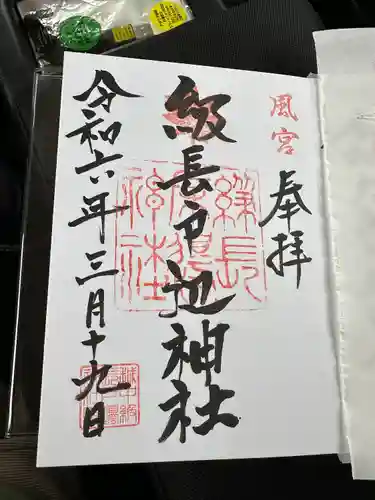 風宮
奉拝
級長戸辺神社
令和六年三月十九日